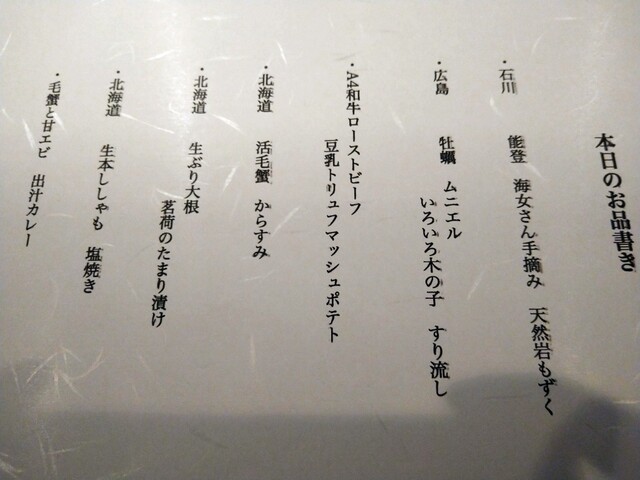 本日のお品書き
・石川 能登 海女さん手摘み 天然岩もずく
・広島 牡蠣 ムニエル
いろいろ木の子 すり流し
・A4和牛ローストビーフ
豆乳トリュフマッシュポテト
・北海道 活毛蟹 からすみ
・北海道 生ぶり大根
茗荷のたまり漬け
・北海道 生本ししゃも 塩焼き
・毛蟹と甘エビ 出汁カレー